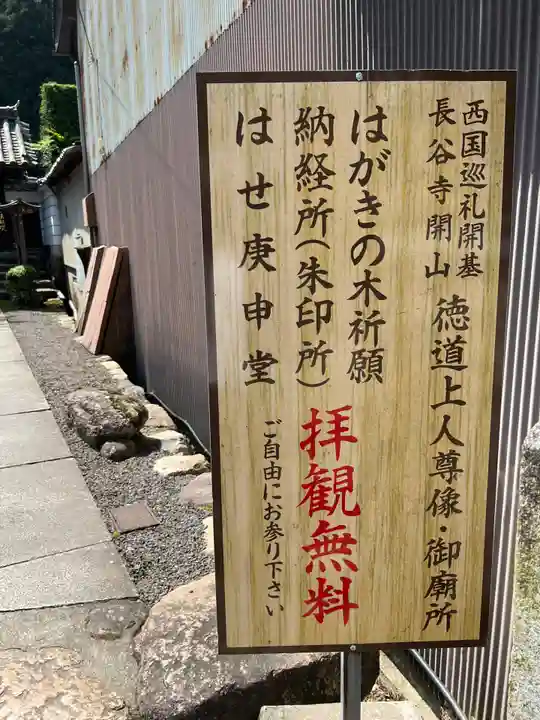 西国巡礼開基
長谷寺開山
徳道上人尊像・御廟所
はがきの木祈願
納経所(朱印所)
拝観無料
はせ庚申堂
ご自由にお参り下さい